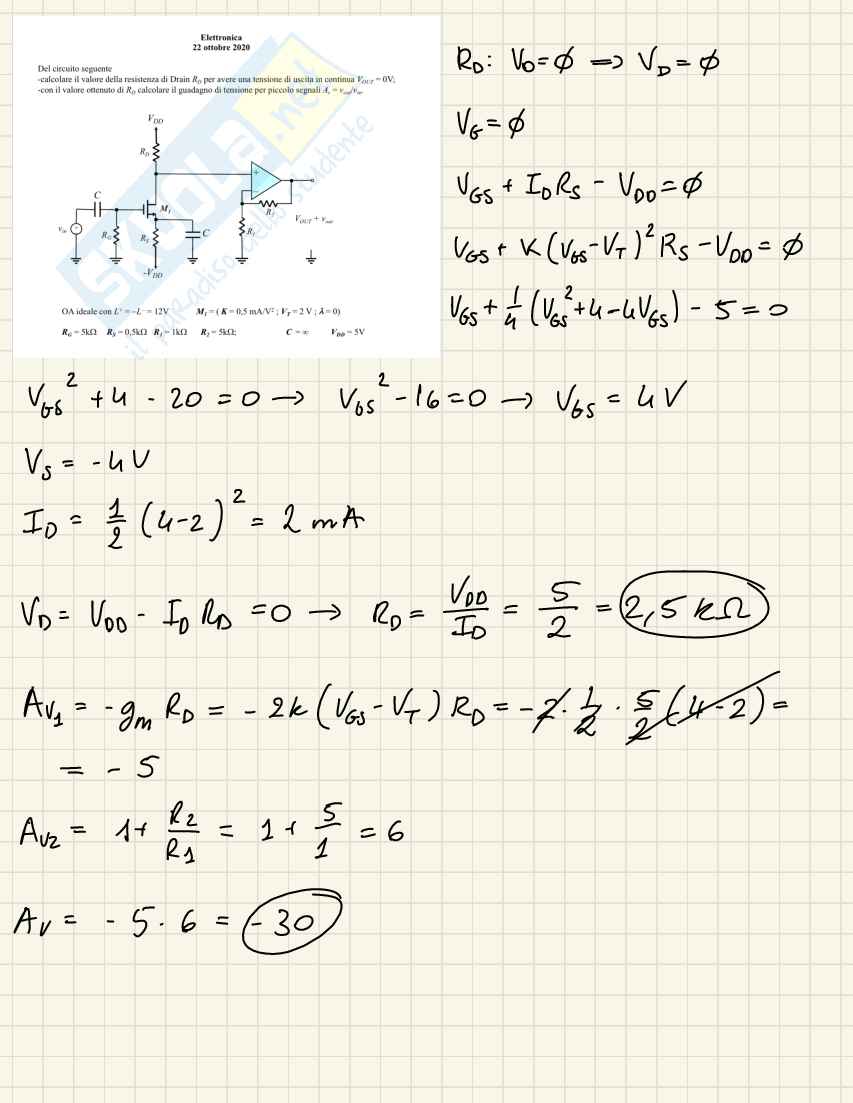 Elettronica
22 ottobre 2020
Del circuito seguente
-calcolare il valore della resistenza di Drain R_D per avere una tensione di uscita in continua V_OUT = 0V;
-con il valore ottenuto di R_D calcolare il guadagno di tensione per piccolo segnali A_v = v_out/v_in.
V_DD
R_D
C
M_1
+
-
v_in
R_G
R_S
C
R_1
R_2
V_OUT + v_out
-V_DD
OA ideale con L⁺ = –L⁻ = 12V M_1 = ( K = 0,5 mA/V² ; V_T = 2 V ; λ = 0)
R_G = 5kΩ R_S = 0,5kΩ R_1 = 1kΩ R_2 = 5kΩ; C = ∞ V_DD = 5V
SKUOLA.net
il paradiso dello studente
R_D: V_O = ∅ ⟹ V_D = ∅
V_G = ∅
V_GS + I_D R_S - V_DD = ∅
V_GS + K(V_GS - V_T)² R_S - V_DD = ∅
V_GS + 1/4 (V_GS² + 4 - 4V_GS) - 5 = 0
V_GS² + 4 - 20 = 0 → V_GS² - 16 = 0 → V_GS = 4V
V_S = -4V
I_D = 1/2 (4-2)² = 2 mA
V_D = V_DD - I_D R_D = 0 → R_D = V_DD/I_D = 5/2 = 2,5 kΩ
A_V1 = -g_m R_D = -2k(V_GS - V_T) R_D = -2 · 1/2 · 5/2 (4-2) =
= -5
A_V2 = 1 + R_2/R_1 = 1 + 5/1 = 6
A_V = -5 · 6 = -30